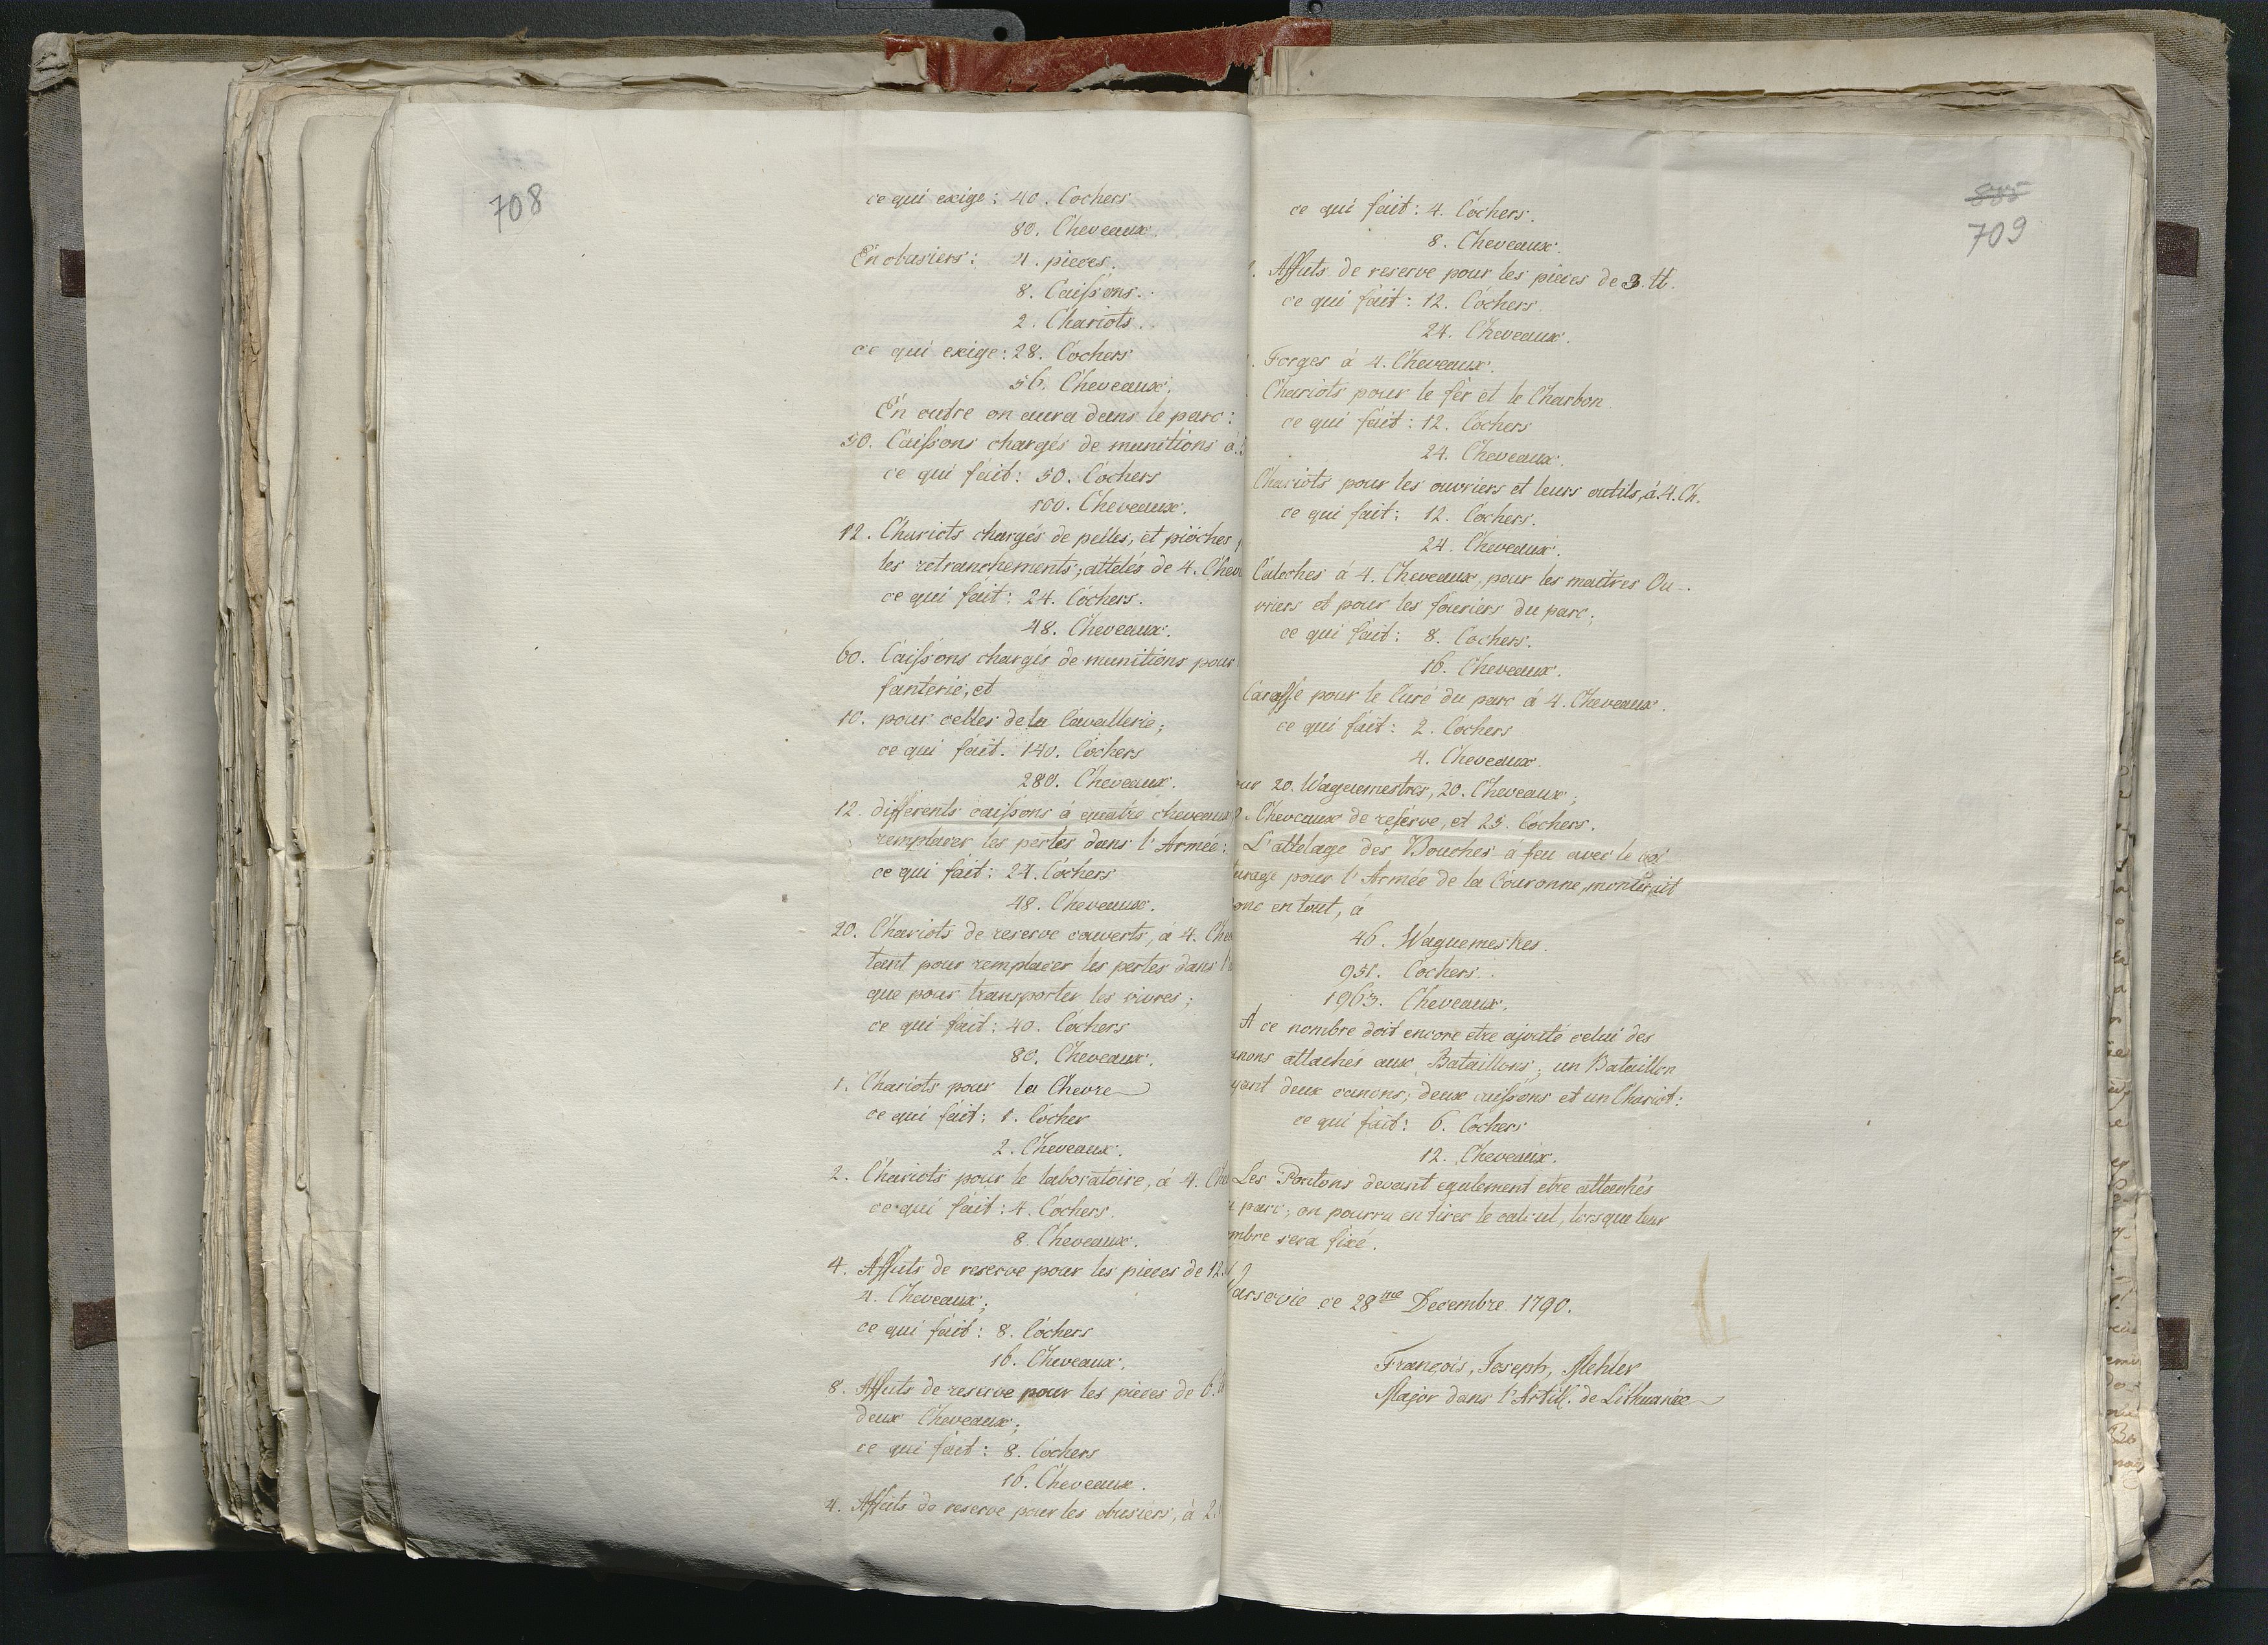 708
ce qui exige: 40. Cochers
80. Cheveaux.
En obusiers: 4. pieces.
8. Caissons.
2. Chariots.
ce qui exige: 28. Cochers
56. Cheveaux.
En outre on aura dans le parc:
50. Caissons chargés de munitions à
ce qui fait: 50. Cochers
100. Cheveaux.
12. Chariots chargés de pelles, et pioches
les retranchements; attelés de 4. Chev
ce qui fait: 24. Cochers.
48. Cheveaux.
60. Caissons chargés de munitions pour
fanterie, et
10. pour celles de la Cavallerie;
ce qui fait. 140. Cochers
280. Cheveaux.
12. differents caissons à quatre cheveaux
remplacer les pertes dans l'Armée:
ce qui fait: 24. Cochers
48. Cheveaux.
20. Chariots de reserve couverts, à 4. Chev
tant pour remplacer les pertes dans l'
que pour transporter les vivres;
ce qui fait: 40. Cochers
80. Cheveaux.
1. Chariots pour la Chevre
ce qui fait: 1. Cocher
2. Cheveaux.
2. Chariots pour le laboratoire, à 4. Che
ce qui fait: 4. Cochers.
8. Cheveaux.
4. Affuts de reserve pour les pieces de 12.
4. Cheveaux;
ce qui fait: 8. Cochers
16. Cheveaux.
8. Affuts de reserve pour les pieces de 6.
deux Cheveaux;
ce qui fait: 8. Cochers
16. Cheveaux.
4. Affuts de reserve pour les obusiers, à 2.
885
709
ce qui fait: 4. Cochers.
8. Cheveaux.
Affuts de reserve pour les pieces de 3. tt.
ce qui fait: 12. Cochers
24. Cheveaux.
Forges à 4. Cheveaux.
Chariots pour le fer et le Charbon
ce qui fait: 12. Cochers
24. Cheveaux.
Chariots pour les ouvriers et leurs outils, à 4. Ch.
ce qui fait: 12. Cochers.
24. Cheveaux.
Caleches à 4. Cheveaux, pour les maitres Ou-
vriers et pour les fouriers du parc;
ce qui fait: 8. Cochers.
16. Cheveaux.
Carosse pour le Curé du parc à 4. Cheveaux.
ce qui fait: 2. Cochers
4. Cheveaux.
our 20. Waguemestres, 20. Cheveaux;
Cheveaux de reserve, et 25. Cochers.
L'attelage des Bouches à feu avec le cha-
riage pour l'Armée de la Couronne, monterait
onc en tout, à
46. Waguemestres.
951. Cochers.
1963. Cheveaux.
A ce nombre doit encore etre ajouté celui des
anons attachés aux Bataillons; un Bataillon
yant deux canons; deux caissons et un Chariot:
ce qui fait: 6. Cochers
12. Cheveaux.
Les Pontons devant egalement etre attachés
u parc, on pourra en tirer le calcul, lorsque leur
ombre sera fixé.
Varsovie ce 28me Decembre 1790.
François, Joseph, Mehler
Major dans l'Artill. de Lithuanie